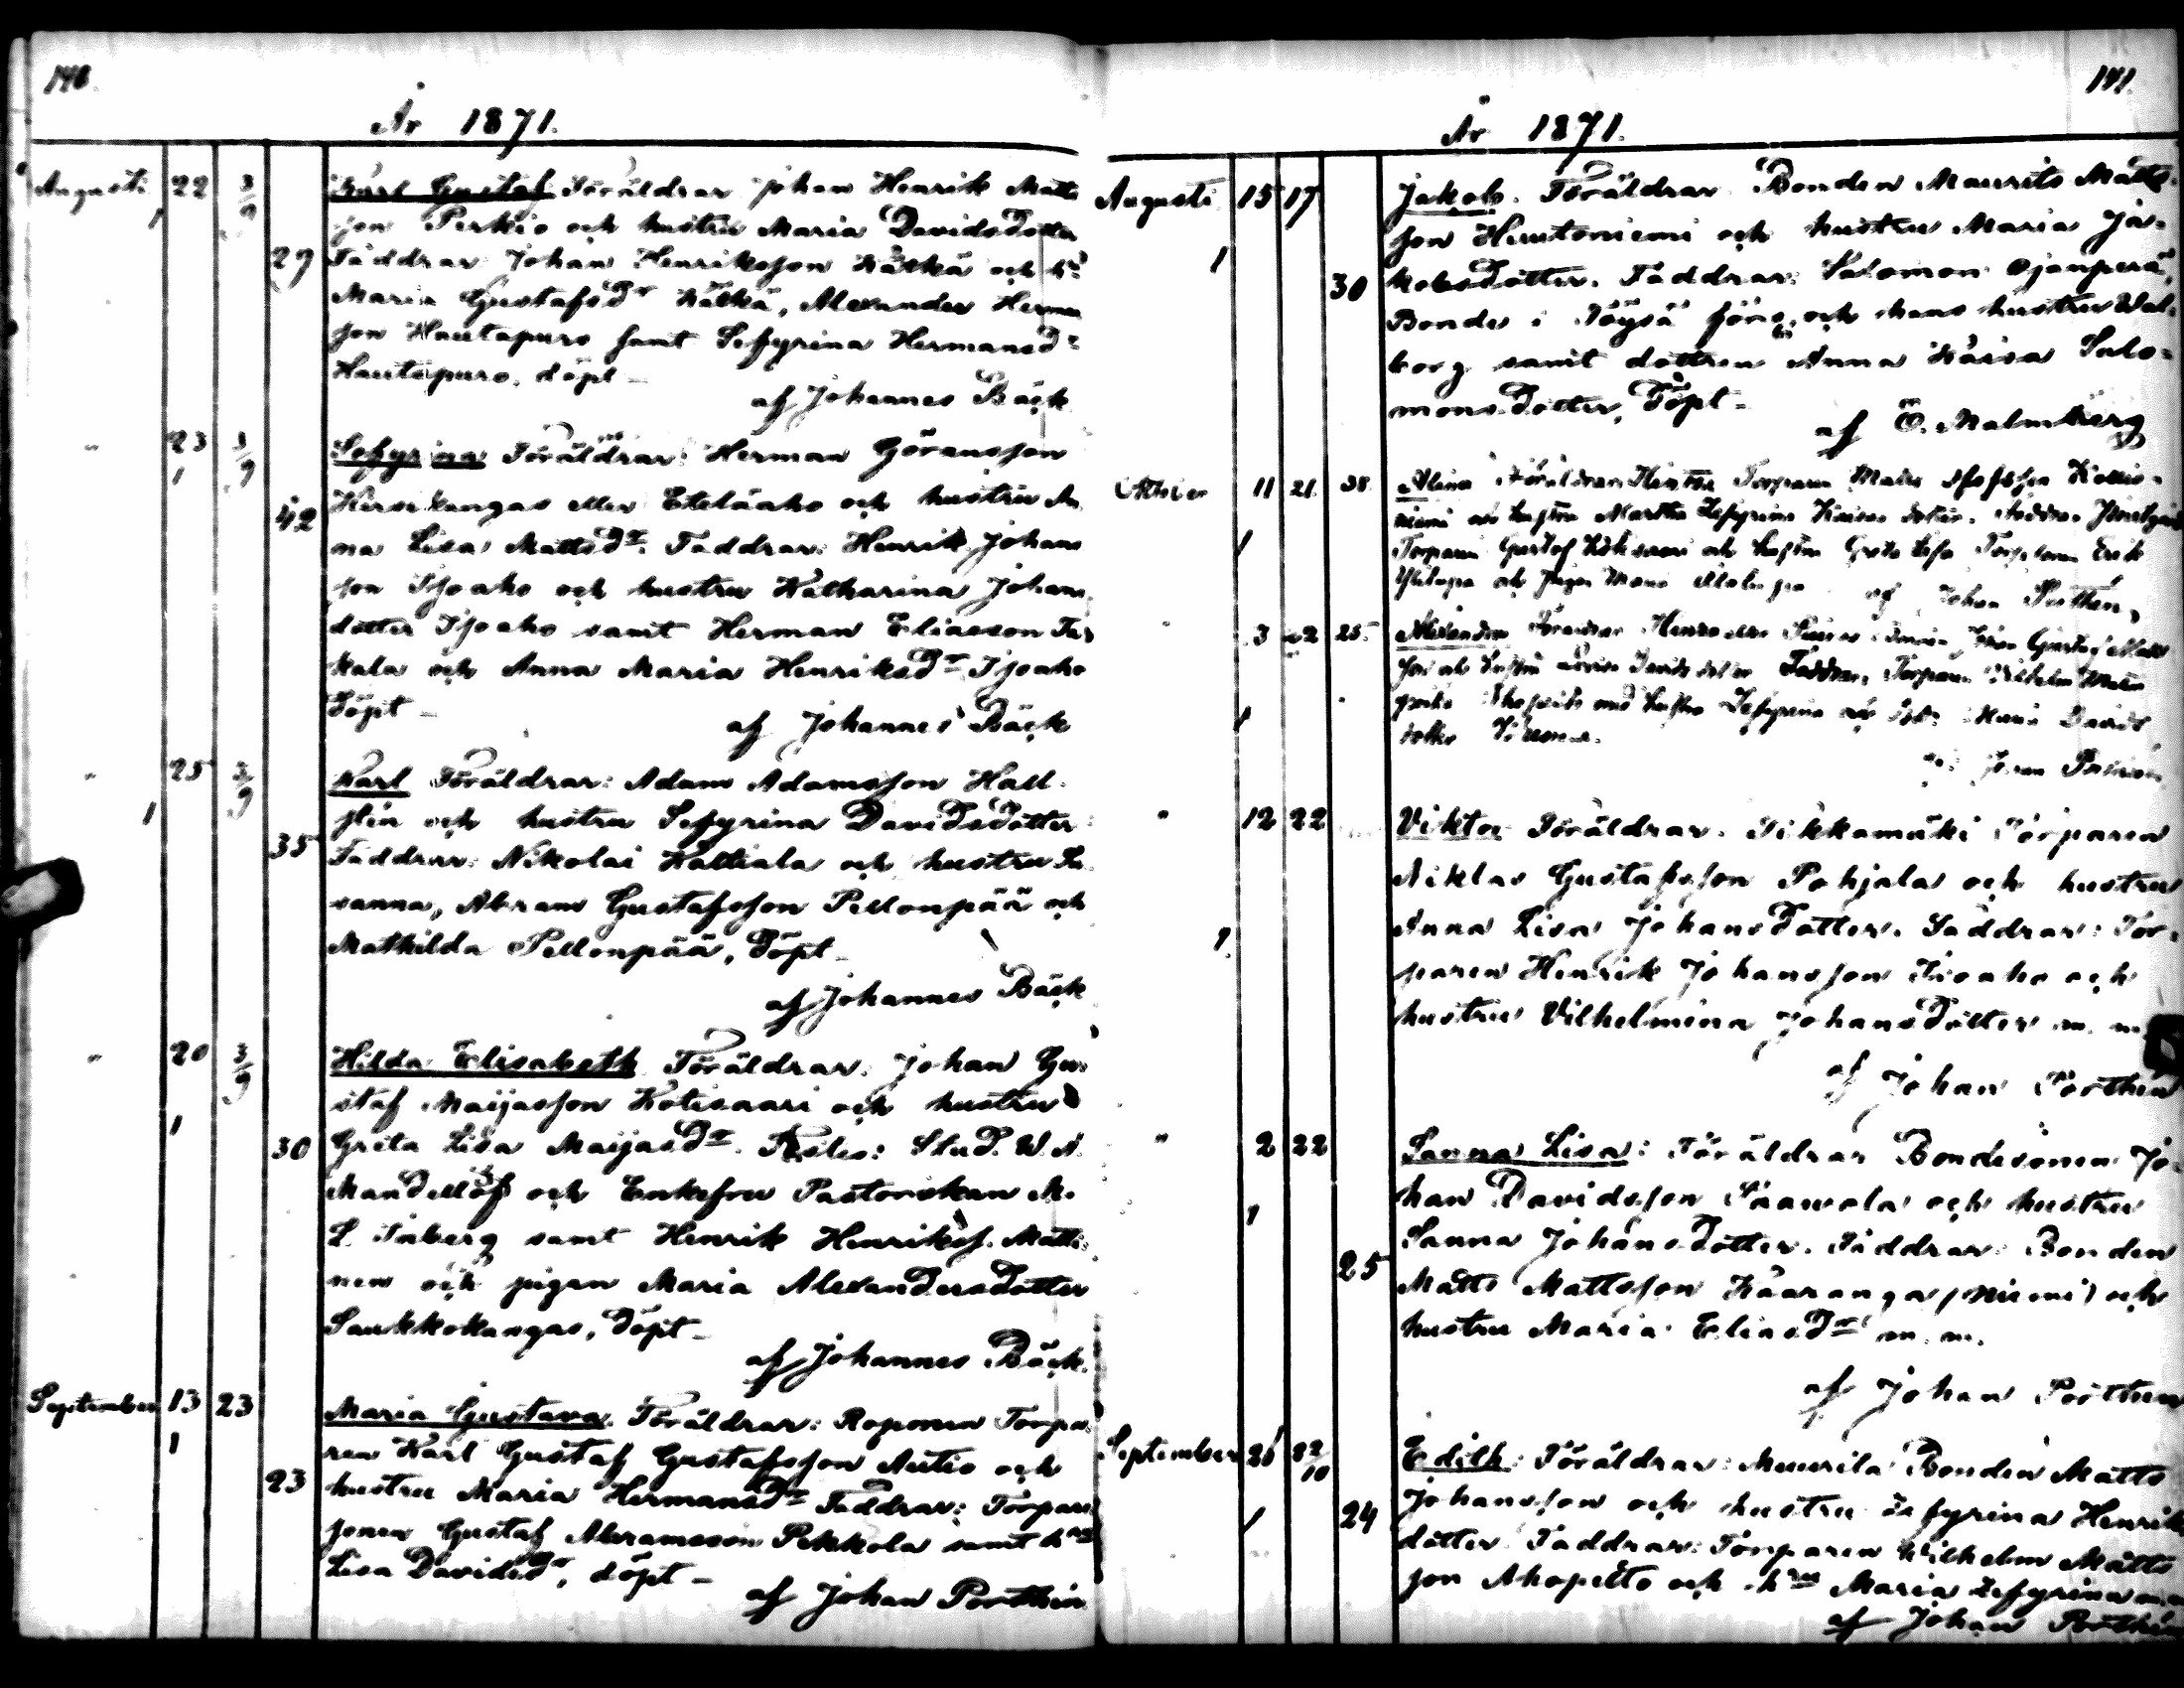 140.
År 1871.
Augusti 22 3/9 Karl Gustaf Föräldrar Johan Henrik Matts
1 son Perkio och hustru Maria Davidsdotter
29 Faddrar Johan Henriksson Kälkä och h:u
Maria Gustafsd:r Kälkä, Alexander Herman
son Hautapuro samt Sefyrina Hermansd:r
Hautapuro, döpt
af Johannes Bäck
" 23 3/9 Sefyrina Föräldrar: Herman Göransson
1 eller Eteläaho och hustru An
42 na Lisa Mattsd:r. Faddrar: Henrik Johans
son Isoaho och hustru Katharina Johans
dotter Isoaho samt Herman Eliasson
kala och Anna Maria Henriksd:r Isoaho
Döpt
af Johannes Bäck
" 25 3/9 Karl Föräldrar: Adam Adamsson Hall
1 och hustru Sefyrina Davidsdotter
35 Faddrar: Nikolai Kalliala och hustru Su
sanna, Abram Gustafsson Pellonpää och
Mathilda Pellonpää, Döpt
af Johannes Bäck
" 20 3/9 Hilda Elisabeth Föräldrar: Johan Gu
staf Maijasson Kotisaari och hustru
1 30 Greta Lisa Maijasd:r. Testes: Stud. W. A.
Mandellöf och Enkefru Pastorskan M.
L. samt Henrik Henrikss. Matti
nen och pigan Maria Alexandersdotter
Saukkokangas, Döpt
af Johannes Bäck.
September 13 23 Maria Gustava. Föräldrar: Roponen Torpa
1 ren Karl Gustaf Gustafsson Autio och
23 hustru Maria Hermansd:r Faddrar: Torpare
sonen Gustaf Abramsson Pekkola samt h:u
Lisa Davidsd:r, döpt
af Johan Porthin
141.
År 1871.
Augusti 15 17 Jakob. Föräldrar Bonden Maurits Matts
son Huutoniemi och hustru Maria Ja
1 30 kobsdotter. Faddrar: Salomon Ojanperä,
Bonde i Töysä förs. och hans hustru Wal
borg samt dottren Anna Kaisa Salo
monsdotter, Döpt
af O. Malmberg
11 21 38 Alina Föräldrar Torparen Matts
niemi och hustru Martha Zefyrina dotter.
1 Torparen Gustaf och hustru Greta Lisa Erik
och pigan Maria
af Johan Porthin
" 3 22 25 Alexander Föräldrar Johan Gustaf Matts
son och hustru Davids dotter Faddrar, Torparen Wilhelm Matts
med hustru Zefyrina Maria Davids
1 dotter
af Johan Porthin
" 12 22 Viktor Föräldrar. Tikkamäki Torparen
Niklas Gustafsson Pohjala och hustru
1 Anna Lisa Johansdotter. Faddrar: Tor
paren Henrik Johansson Isoaho och
hustru Vilhelmina Johansdotter m. m.
af Johan Porthin
" 2 22 Sanna Lisa: Föräldrar Bondesonen Jo
han Davidsson Saawola och hustru
1 25 Sanna Johansdotter. Faddrar: Bonden
Matts Mattsson Kaaranga (Niemi) och
hustru Maria Eliasd:r m. m.
af Johan Porthin
September 26 22/10 Edith: Föräldrar: Muurila Bonden Matts
1 24 Johansson och hustru Zefyrina Henriks
dotter Faddrar: Torparen Wilhelm Matts
son Ahopelto och h:u Maria Zefyrina m. m.
af Johan Porthin